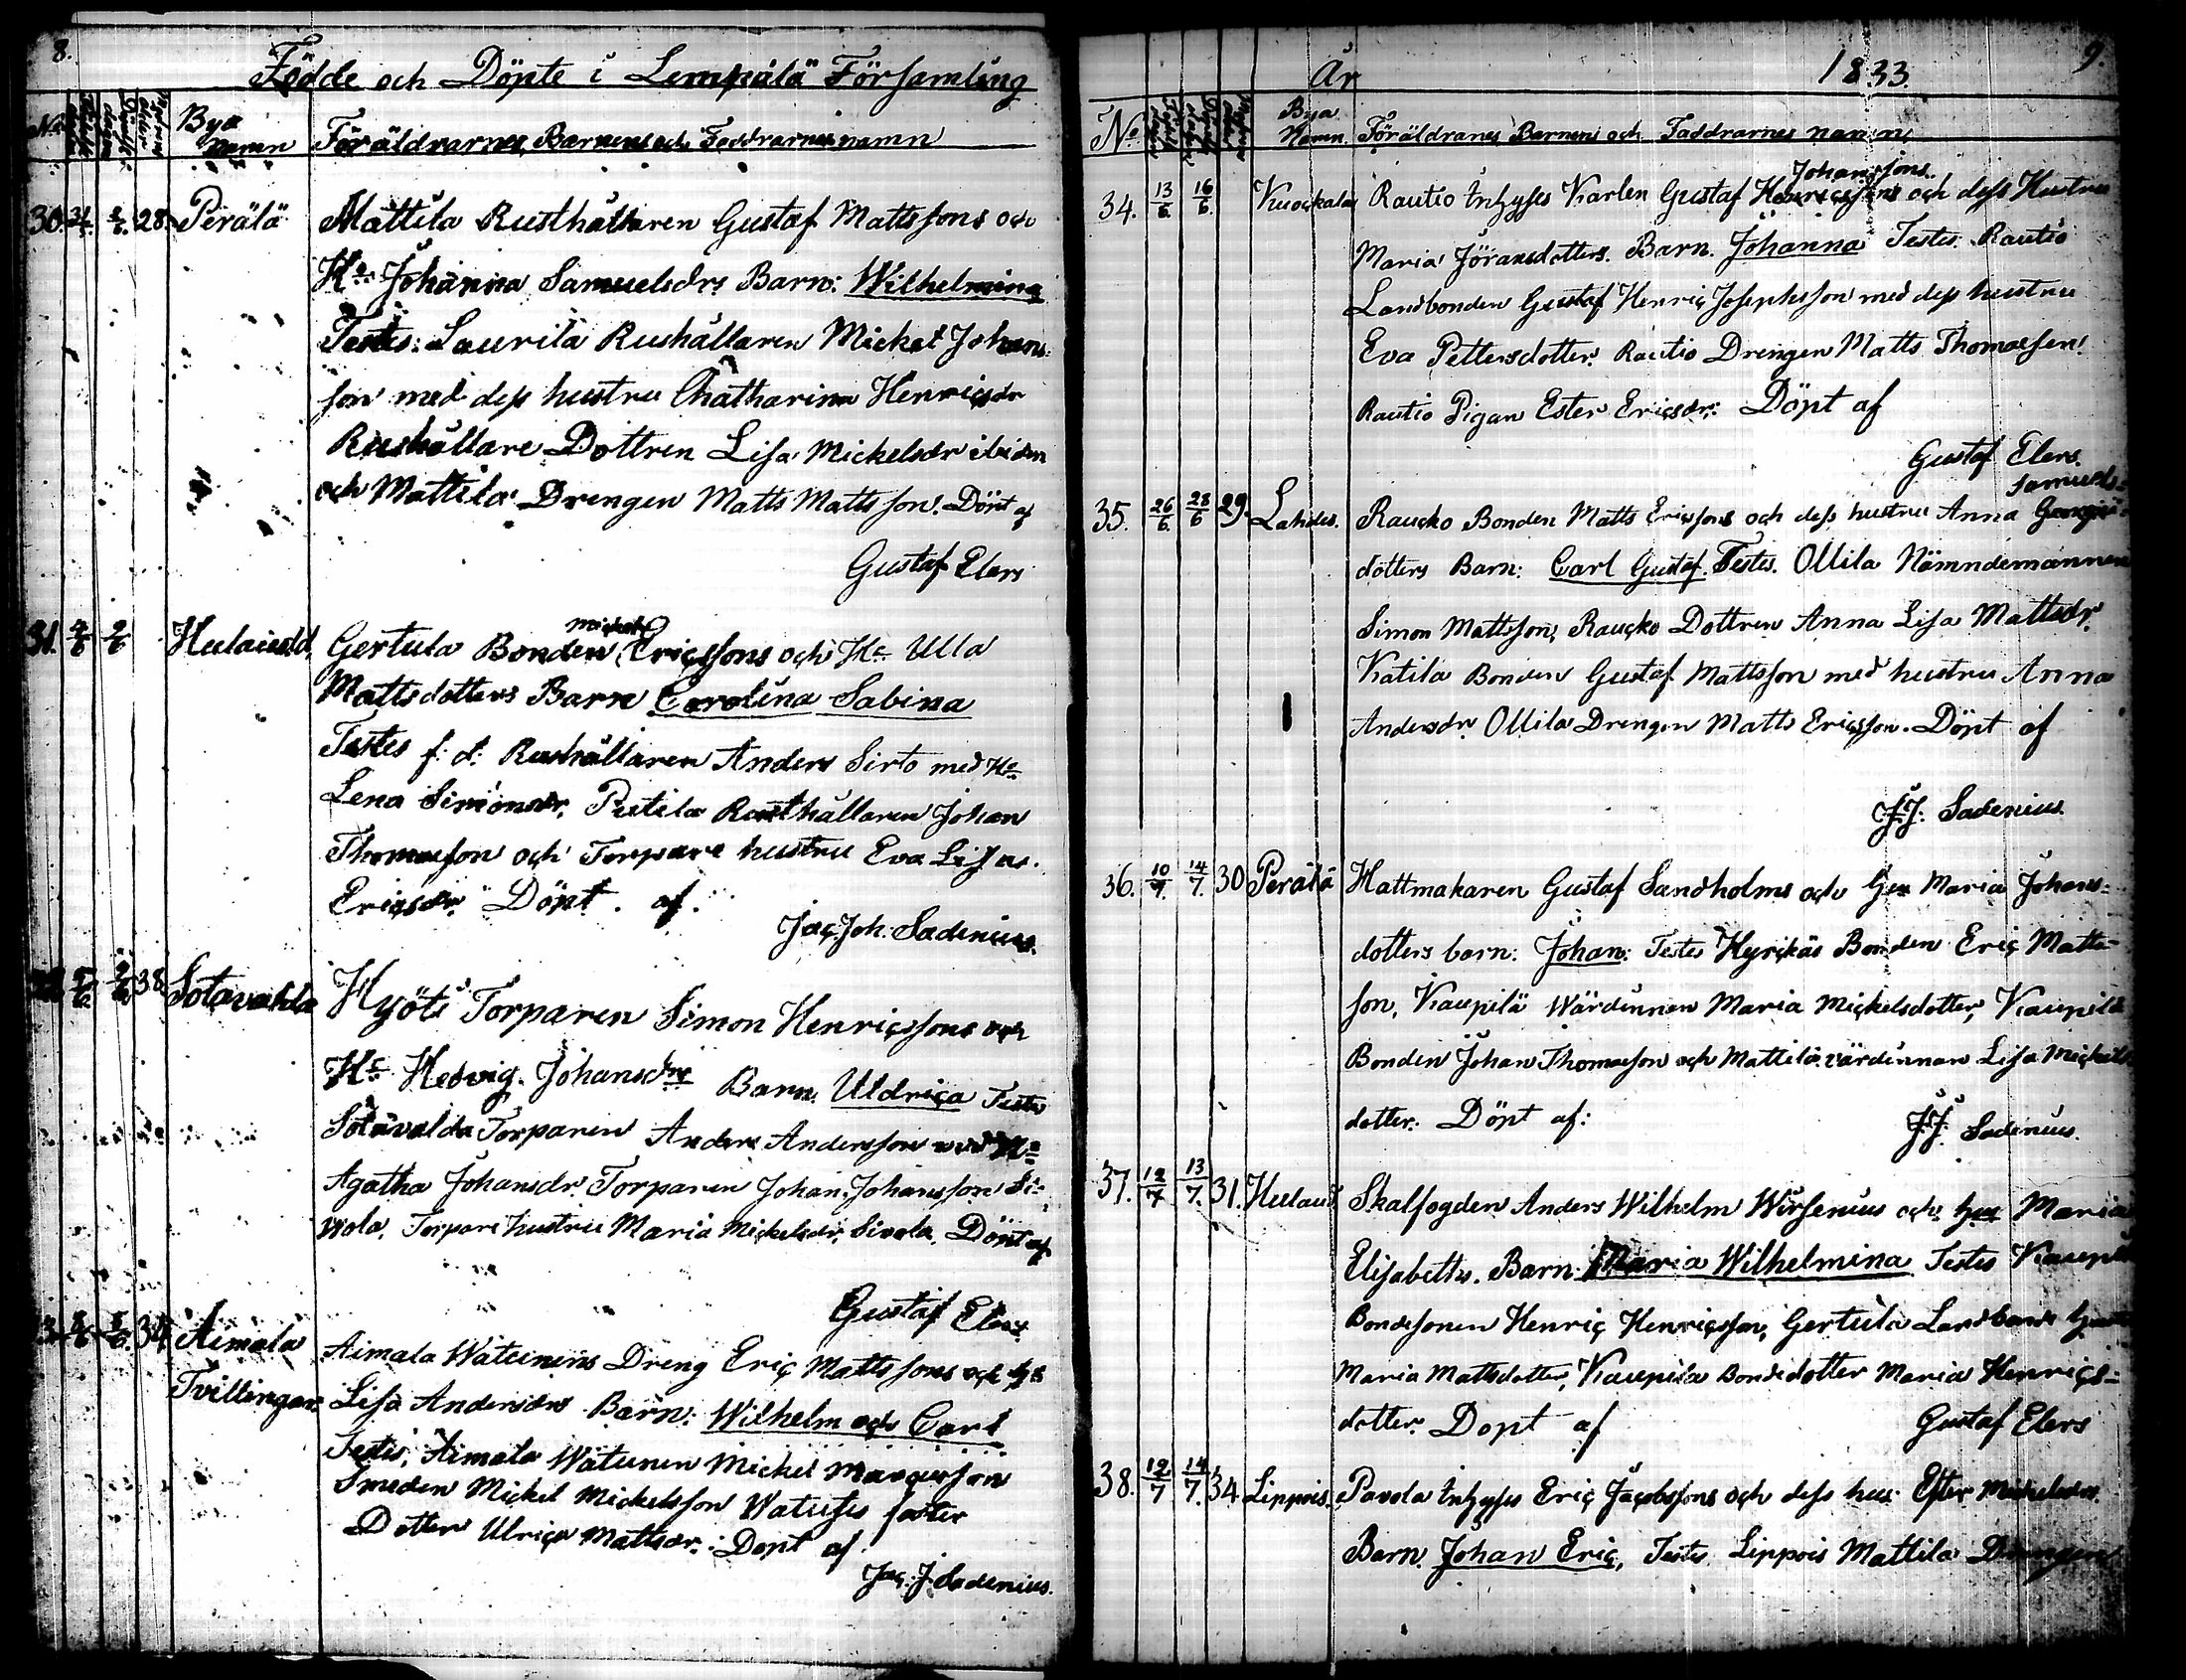 8.
Födde och Döpte i Lempälä Församling
No
Bya namn
Föräldrarnes, Barnens och Faddrarnes namn
30. 28. Perälä Mattila Rusthållaren Gustaf Mattssons och
Ha Johanna Samuelsdrs Barn: Wilhelmina
Testes: Laurila Rushållaren Mickel Johans-
son med dess hustru Chatharina Henricsdr
Rushållare Dottren Lisa Mickelsdr ibidm
och Mattila Drengen Matts Mattsson. Döpt af
Gustaf Elers
31. Gertula Bonden Mickel Ericssons och Ha Ulla
Mattsdotters Barn Carolina Sabina
Testes f: d: Rushållaren Anders Sirto med Ha
Lena Simonsdr, Rusthållaren Johan
Thomasson och Torpare hustru Eva Lisa
Ericsdr Döpt af.
Jac. Joh. Sadenius.
38 Sotavalda Hyöti Torparen Simon Henricssons och
Ha Hedvig Johansdrs Barn. Uldrica Testes
Sotavalda Torparen Anders Andersson med Ha
Agatha Johansdr. Torparen Johan Johansson Si-
vola, Torpare hustru Maria Mickelsdr, Sivola. Döpt af
Gustaf Elers
34 Aimala Aimala Watuinens Dreng Eric Mattssons och
Tvillingar. Lisa Andersdrs Barn: Wilhelm och Carl
Testes, Aimala Watuinen Mickel Marcusson
Smeden Mickel Mickelsson
Dotter Ulrica Mattsdr. Döpt af
Jac. J. Sadenius.
År 1833. 9.
No
Bya Namn.
Föräldranes Barnens och Faddrarnes namn
34. 13/6 16/6 Kuockala Rautio Inhyses Karlen Gustaf Johanssons och dess Hustru
Maria Jöransdotters. Barn. Johanna Testes. Rautio
Landbonden Gustaf Henric Josephsson med dess hustru
Eva Pettersdotter. Rautio Drengen Matts Thomasson.
Rautio Pigan Ester Ericsdr: Döpt af
Gustaf Elers.
35. 26/6 28/6 29. Lahdes. Raucko Bonden Matts Ericsons och dess hustru Anna Samuels-
dotters Barn: Carl Gustaf. Testes. Ollila Nämndemannen
Simon Mattsson, Raucko Dottren Anna Lisa Mattsdr.
Katila Bonden Gustaf Mattsson med hustru Anna
Andersdr. Ollila Drengen Matts Ericsson. Döpt af
J.J. Sadenius.
36. 10/7 14/7 30 Perälä Hattmakaren Gustaf Sandholms och Maria Johans-
dotters barn: Johan: Testes Hyrckäs Bonden Eric Matts-
son, Kaupilä Wärdinnan Maria Mickelsdotter, Kaupilä
Bonden Johan Thomasson och Mattila värdinnan Lisa Mickels
dotter. Döpt af:
J.J. Sadenius.
37. 12/7 13/7 31. Skalfogden Anders Wilhelm Wirsenius och hus Maria
Elisabeths. Barn. Maria Wilhelmina Testes
Bondesonen Henric Henricsson, Gertula Landbonde
Maria Mattsdotter, Kaupila Bondedotter Maria Henrics-
dotter. Döpt af
Gustaf Elers
38. 12/7 14/7 34. Lippois. Pavola Inhyses Eric Jacobssons och dess hus. Ester Mickelsdrs.
Barn. Johan Eric, Testes. Lippois Mattila Drengen